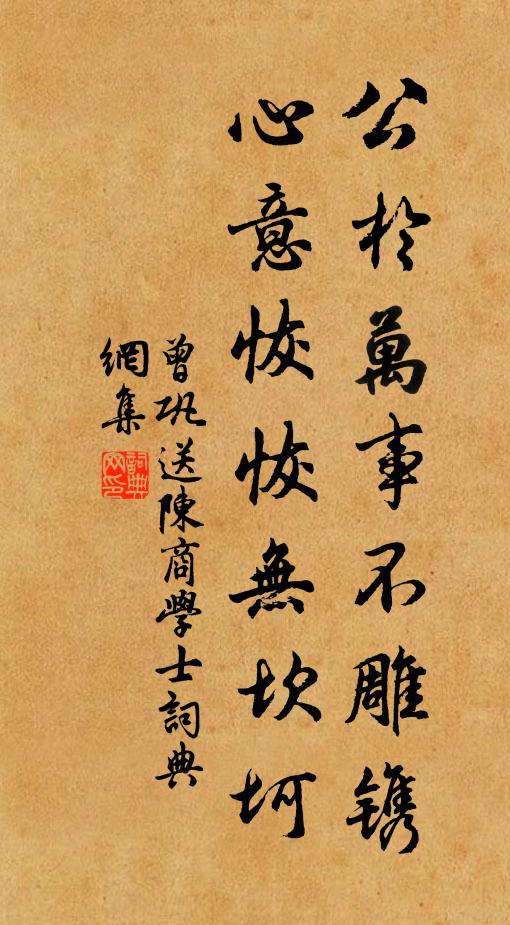 公於萬事不雕鐫
心意恢恢無坎坷
曾巩送陳商學士詞典
網集
詞典
网印